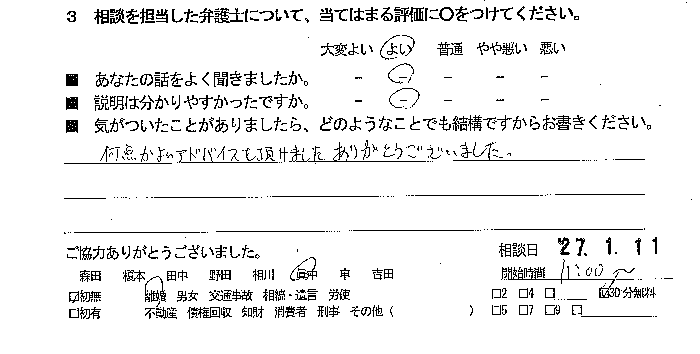 3 相談を担当した弁護士について、当てはまる評価に○をつけてください。
大変よい よい 普通 やや悪い 悪い
■ あなたの話をよく聞きましたか。 － － － － －
■ 説明は分かりやすかったですか。 － － － － －
■ 気がついたことがありましたら、どのようなことでも結構ですからお書きください。
何点かよいアドバイスも頂けました ありがとうございました。
ご協力ありがとうございました。
相談日 '27. 1. 11
森田 榎本 田中 野田 相川 田中 車 吉田
開始時間 11:00〜
☑初無 離婚 男女 交通事故 相続・遺言 労使
□2 □4 □ ☑30分無料
□初有 不動産 債権回収 知財 消費者 刑事 その他（ ）
□5 □7 □9 □